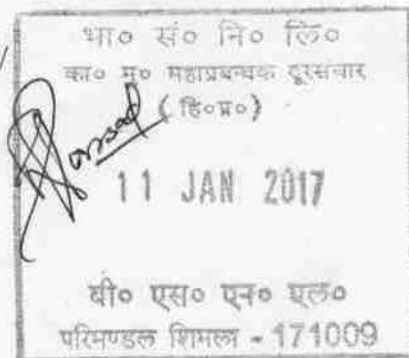 भा० सं० नि० लि०
का० मु० महाप्रबन्धक दूरसंचार
( हि०प्र० )
11 JAN 2017
बी० एस० एन० एल०
परिमण्डल शिमला - 171009